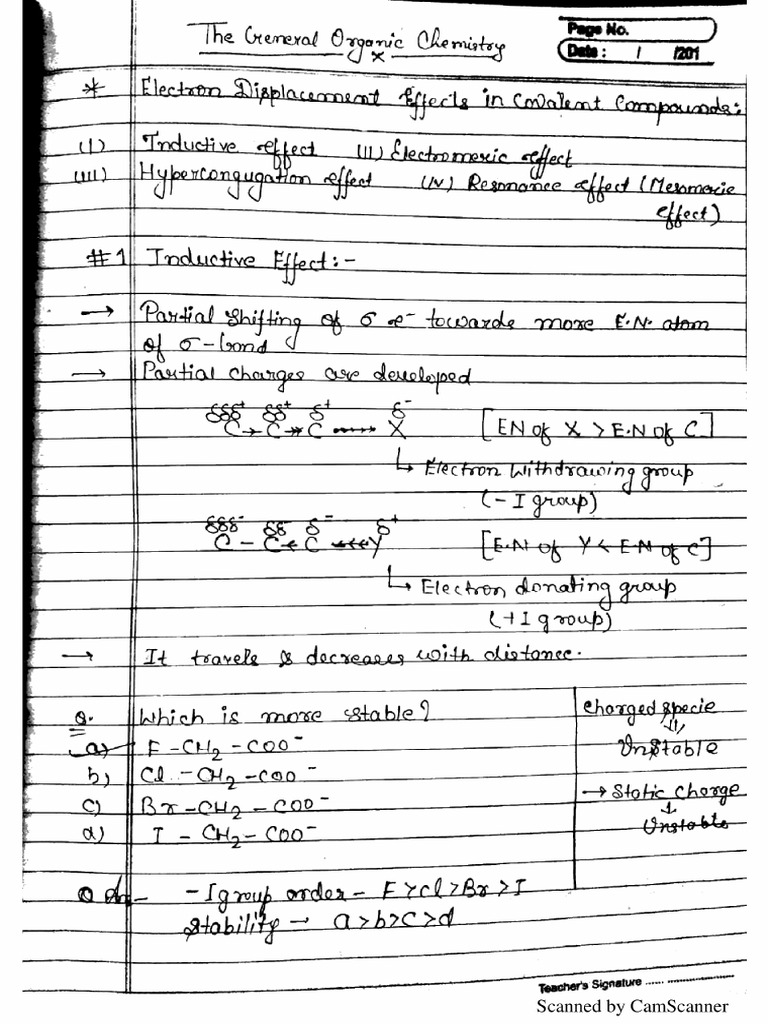 The General Organic Chemistry
Page No.
Date : / /201
* Electron Displacement Effects in Covalent Compounds:
(I) Inductive effect (II) Electromeric effect
(III) Hyperconjugation effect (IV) Resonance effect (Mesomeric
effect)
#1 Inductive Effect:-
→ Partial shifting of σ e⁻ towards more E.N. atom
of σ-bond
→ Partial charges are developed
δδδ⁺ δδ⁺ δ⁺ δ⁻
C→C→C→X [EN of X > E.N of C]
↳ Electron withdrawing group
(-I group)
δδδ⁻ δδ⁻ δ⁻ δ⁺
C-C←C←Y [E.N of Y < E.N of C]
↳ Electron donating group
(+I group)
→ It travels & decreases with distance.
Q. Which is more stable?
a) F-CH₂-COO⁻
b) Cl-CH₂-COO⁻
c) Br-CH₂-COO⁻
d) I-CH₂-COO⁻
Charged specie
⇓
Unstable
→ Static charge
↓
Unstable
-I group order - F>Cl>Br>I
Stability → a>b>c>d
Teacher's Signature ...... ....................
Scanned by CamScanner